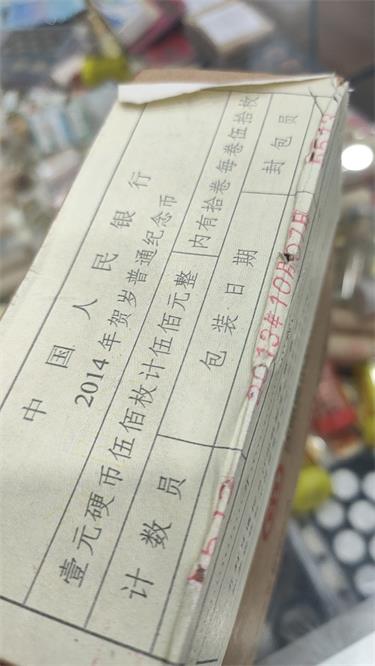 中国人民银行
2014年贺岁普通纪念币
壹元硬币伍佰枚计伍佰元整
内有拾卷每卷伍拾枚
计数员
包装日期
2013年10月07日
封包员